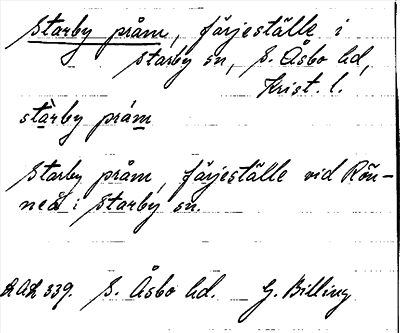 Starby pråm, färjeställe i
Starby sn, S. Åsbo hd,
Krist. l.
stàrby pråm
Starby pråm, färjeställe vid Rön-
neå i Starby sn.
LAL 339. S. Åsbo hd. G. Billing